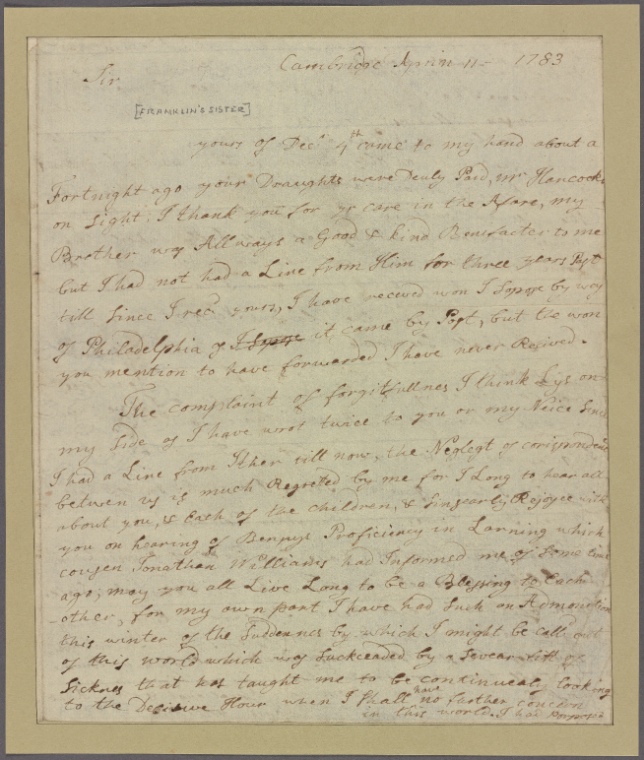 Cambridge April 11 = 1783
Sir
[FRANKLIN'S SISTER]
yours of Decr 4th came to my hand about a
Fortnight ago your Draughts ware Deuly Paid, mr Hancocks
on Sight. I thank you for yr care in the Afare, my
Brother was Allways a Good & kind Benifacter to me
but I had not had a Line from Him for three years Past
till Since I recd yours, I have receved won I Supose by way
of Philadelphia as I Supose it came by Post, but the won
you mention to have forwarded I have never Receved.
The complaint of forgitfullnes I think Lys on
my Side as I have wrot twice to you or my Neice Since
I had a Line from Ither till now, the Neglegt of corispondence
betwen us is much Regreted by me for I Long to hear all
about you, & Each of the children, & Sinsearly Rejoyce with
you on hearing of Bennys Proficiency in Larning which
cousen Jonathan Williams had Informed me of Some time
ago, may you all Live Long to be a Blessing to Each
other, for my own part I have had Such an Admonition
this winter of the Suddennes by which I might be call'd out
of this world which was Suckceaded by a Sevear fitt of
Sicknes that has taught me to be continuealy looking
to the Decisive Hour when I Shall have no further concern
in this world. I had